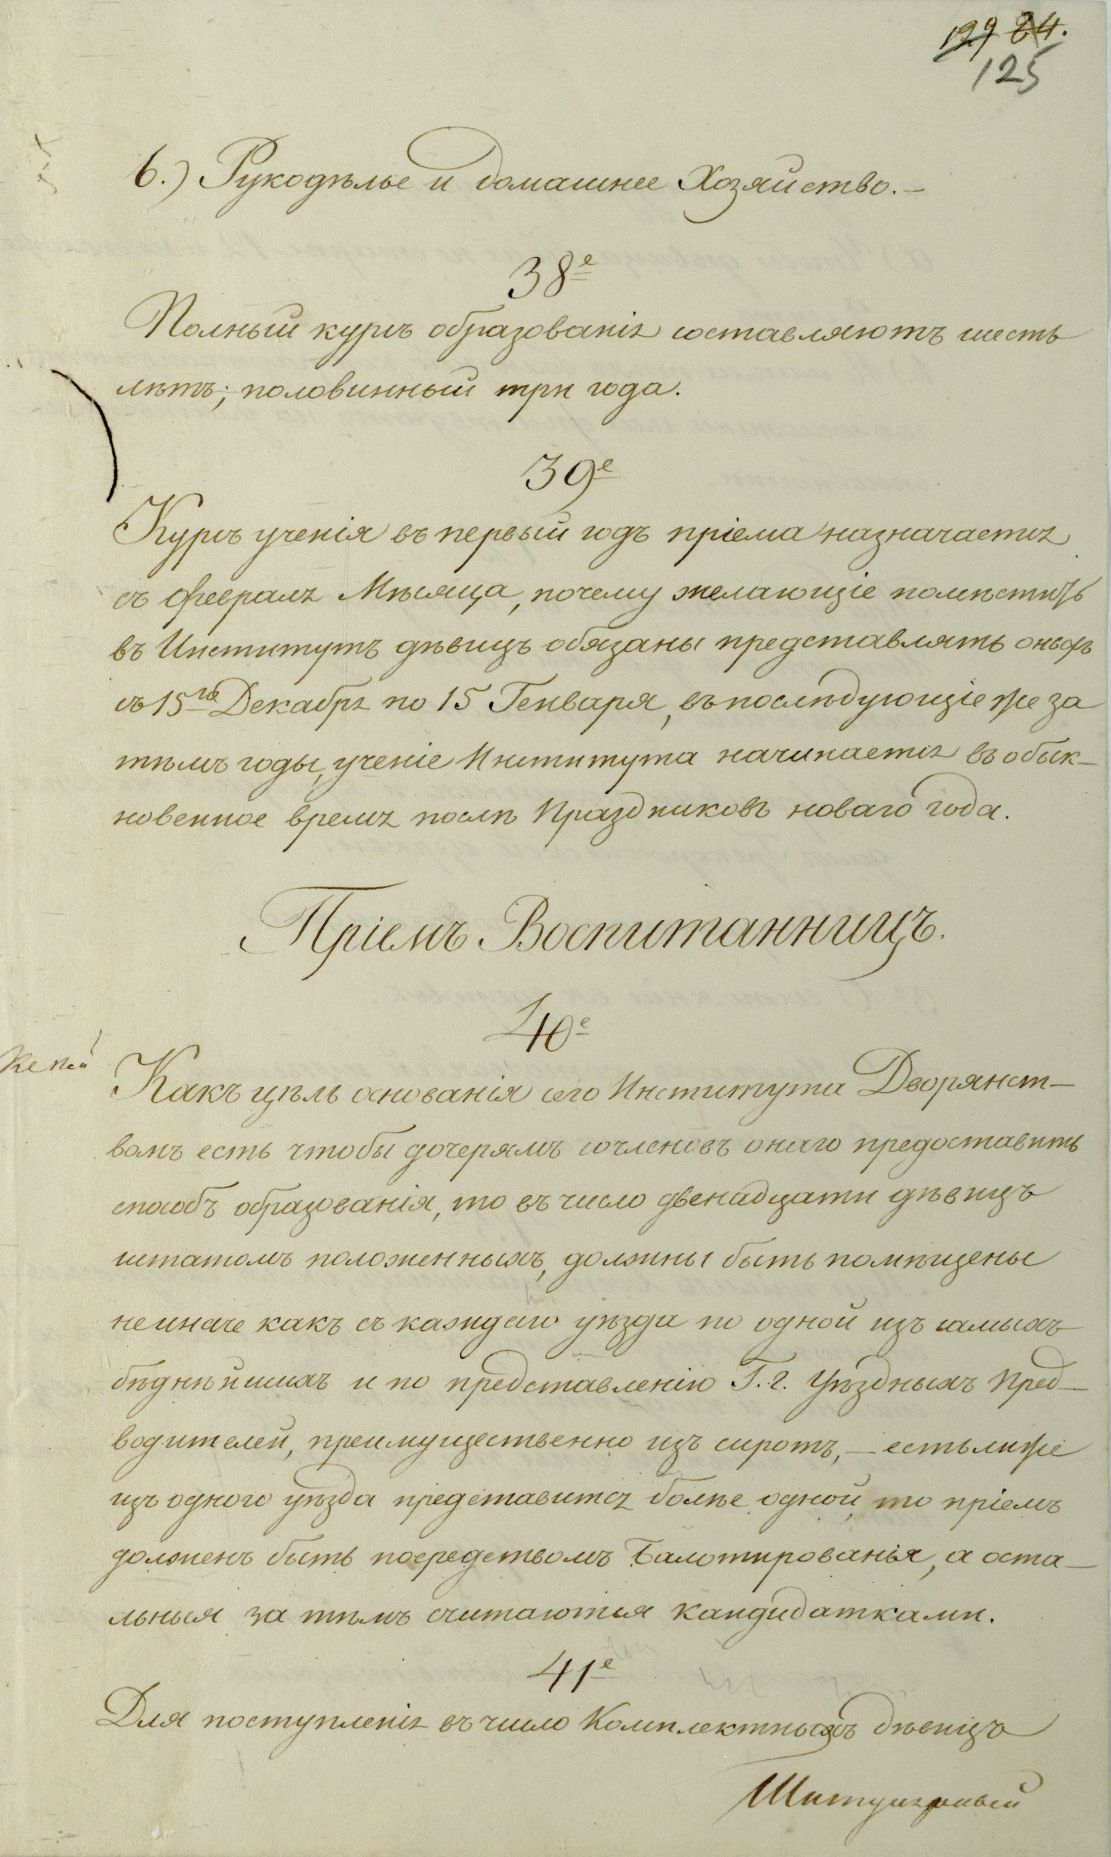 129 84.
125
6.) Рукодѣлье и домашнее Хозяйство.—
38е
Полный курсъ образованія составляютъ шесть
лѣтъ; половинный три года.
39е
Курсъ ученія въ первый годъ пріема назначается
съ февраля Мѣсяца, почему желающіе помѣстить
въ Институтъ дѣвицъ обязаны представлять оныхъ
съ 15го Декабря по 15 Генваря, въ послѣдующіе же за
тѣмъ годы, ученіе Института начинается въ обык-
новенное время послѣ Праздниковъ новаго года.
Пріемъ Воспитанницъ.
40е
Какъ цѣль основанія сего Института Дворянст-
вомъ есть чтобы дочерямъ сочленовъ онаго предоставить
способъ образованія, то въ число двенадцати дѣвицъ
штатомъ положенныхъ, должны быть помѣщены
не иначе какъ съ каждаго уѣзда по одной изъ самыхъ
бѣднѣйшихъ и по представленію Г.г. Уѣздныхъ Пред-
водителей, преимущественно изъ сиротъ,— естьли же
изъ одного уѣзда представится болѣе одной, то пріемъ
долженъ быть посредствомъ Балотированья, а оста-
льныя за тѣмъ считаются кандидатками.
41е
Для поступленія въ число Комплектныхъ дѣвицъ